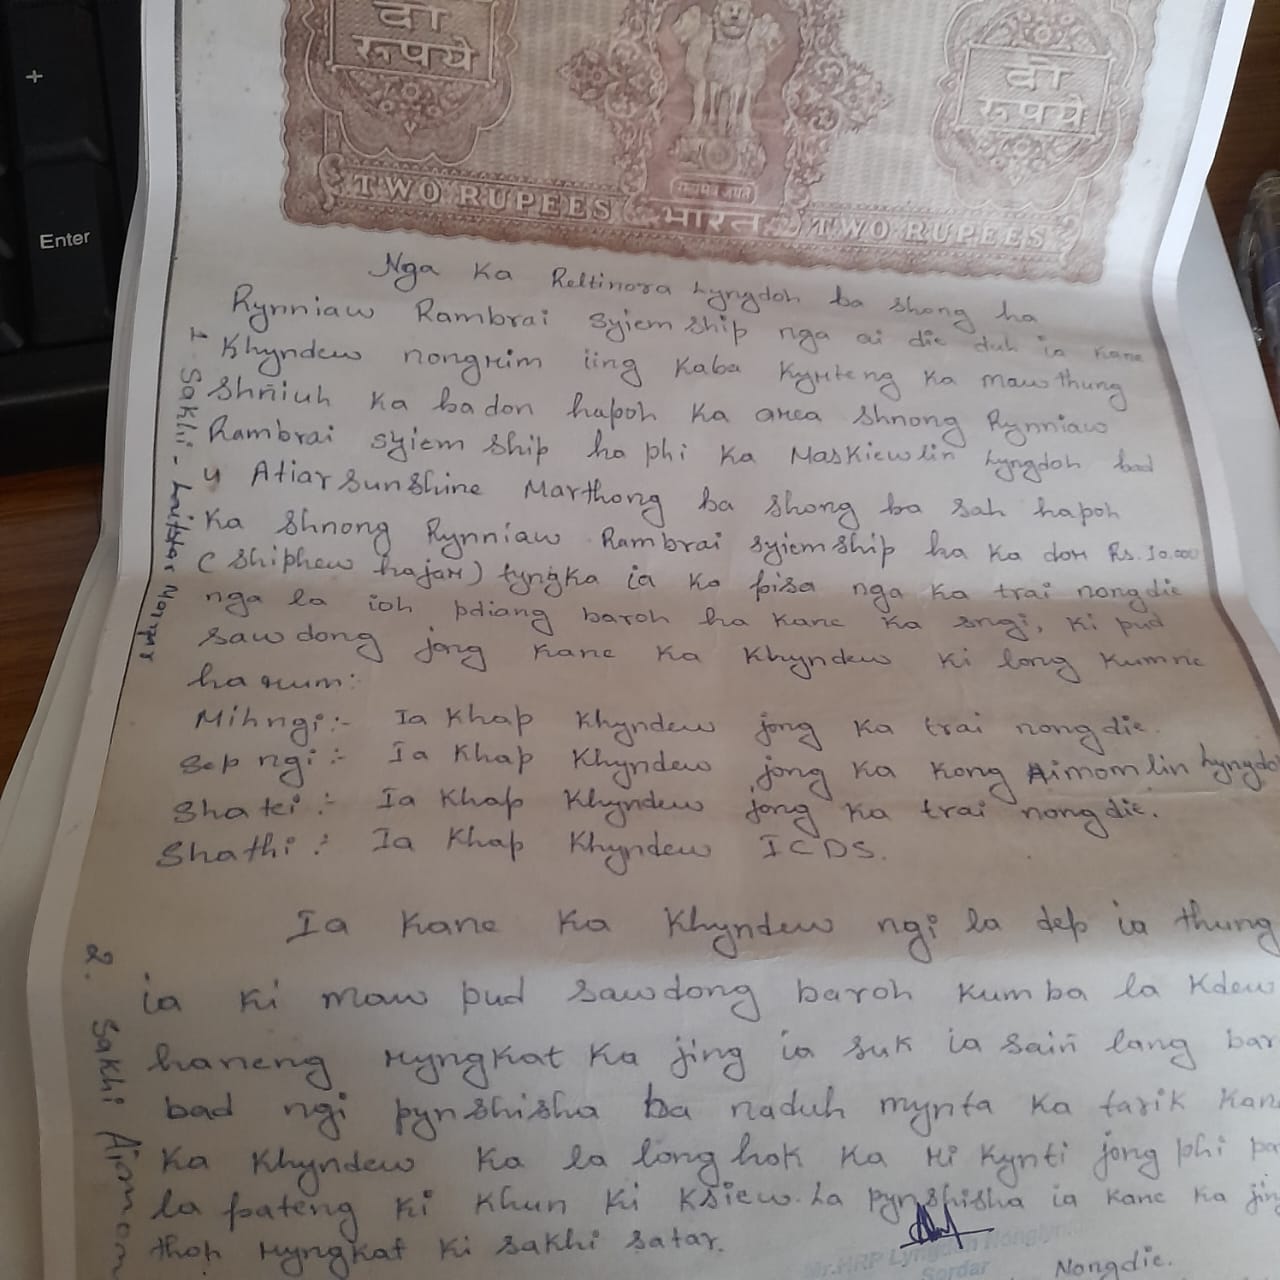 +
Enter
दो
रूपये
दो
रूपये
सत्यमेव जयते
TWO RUPEES भारत TWO RUPEES
Nga Ka Reltinora Lyngdoh ba shong ha
Rynniaw Rambrai syiem ship nga ai die duh ia kane
Khyndew nongrim iing kaba kyrteng ka maw thung
shñiuh ka ba don hapoh ka area shnong Rynniaw
Rambrai syiem ship ha phi ka Maskiewlin Lyngdoh bad
u Atiarsunshine Marthong ba shong ba sah hapoh
ka shnong Rynniaw Rambrai syiemship ha ka dor Rs. 10.000
(shiphew hajar) tyngka ia ka pisa nga ka trai nongdie
nga la ioh pdiang baroh ha kane ka sngi, ki pud
sawdong jong kane ka khyndew ki long kumne
harum:
Mihngi:- Ia khap khyndew jong ka trai nongdie.
Sepngi:- Ia khap khyndew jong ka kong Aimomlin Lyngdo
Shatei:- Ia khap khyndew jong ka trai nongdie.
Shathi:- Ia khap khyndew ICDS.
Ia kane ka khyndew ngi la dep ia thung
ia ki maw pud sawdong baroh kumba la kdew
haneng ryngkat ka jing ia suk ia saiñ lang bar
bad ngi pynshisha ba naduh mynta ka tarik kan
ka khyndew ka la long hok ka ri kynti jong phi pa
la pateng ki khun ki ksiew. La pynshisha ia kane ka jing
thoh ryngkat ki sakhi satar.
Mr.HRP Lyngdoh
Sordar
Nongdie.
1 Sakhi -
2. Sakhi Aimom